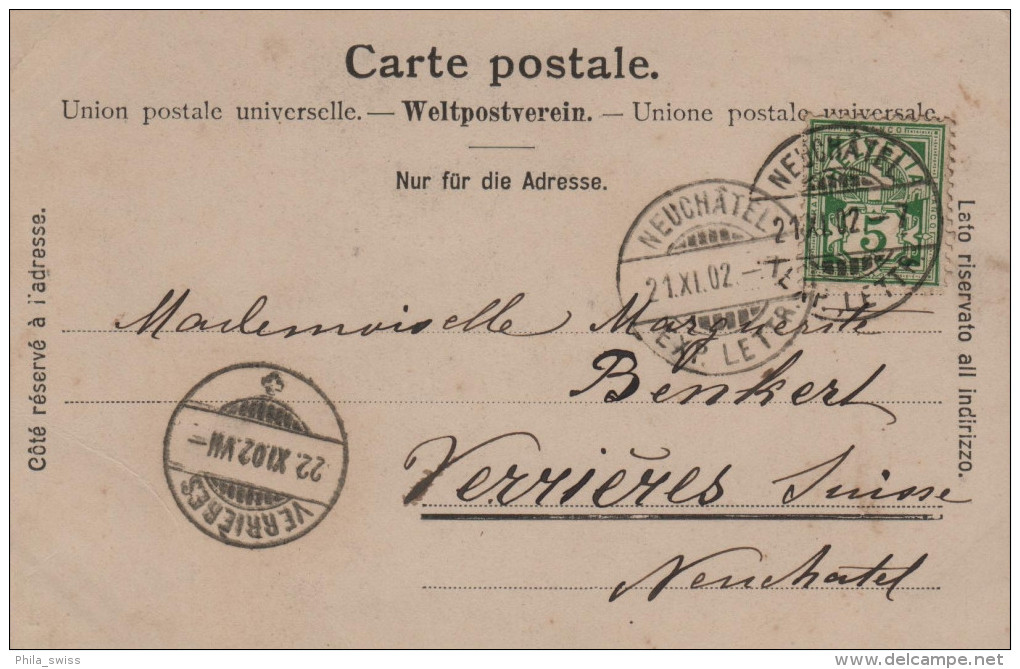 Carte postale.
Union postale universelle. — Weltpostverein. — Unione postale universale.
Nur für die Adresse.
Côté réservé à l'adresse.
Lato riservato all indirizzo.
FRANCO
5
NEUCHÂTEL
21.XI.02 –
EXP. LETTR.
NEUCHÂTEL
21.XI.02 – X
EXP. LETTR.
Mademoiselle Marguerite
Benkert
Verrières Suisse
Neuchatel
22.XI.02.VII –
VERRIÈRES
Phila_swiss
delcampe.net